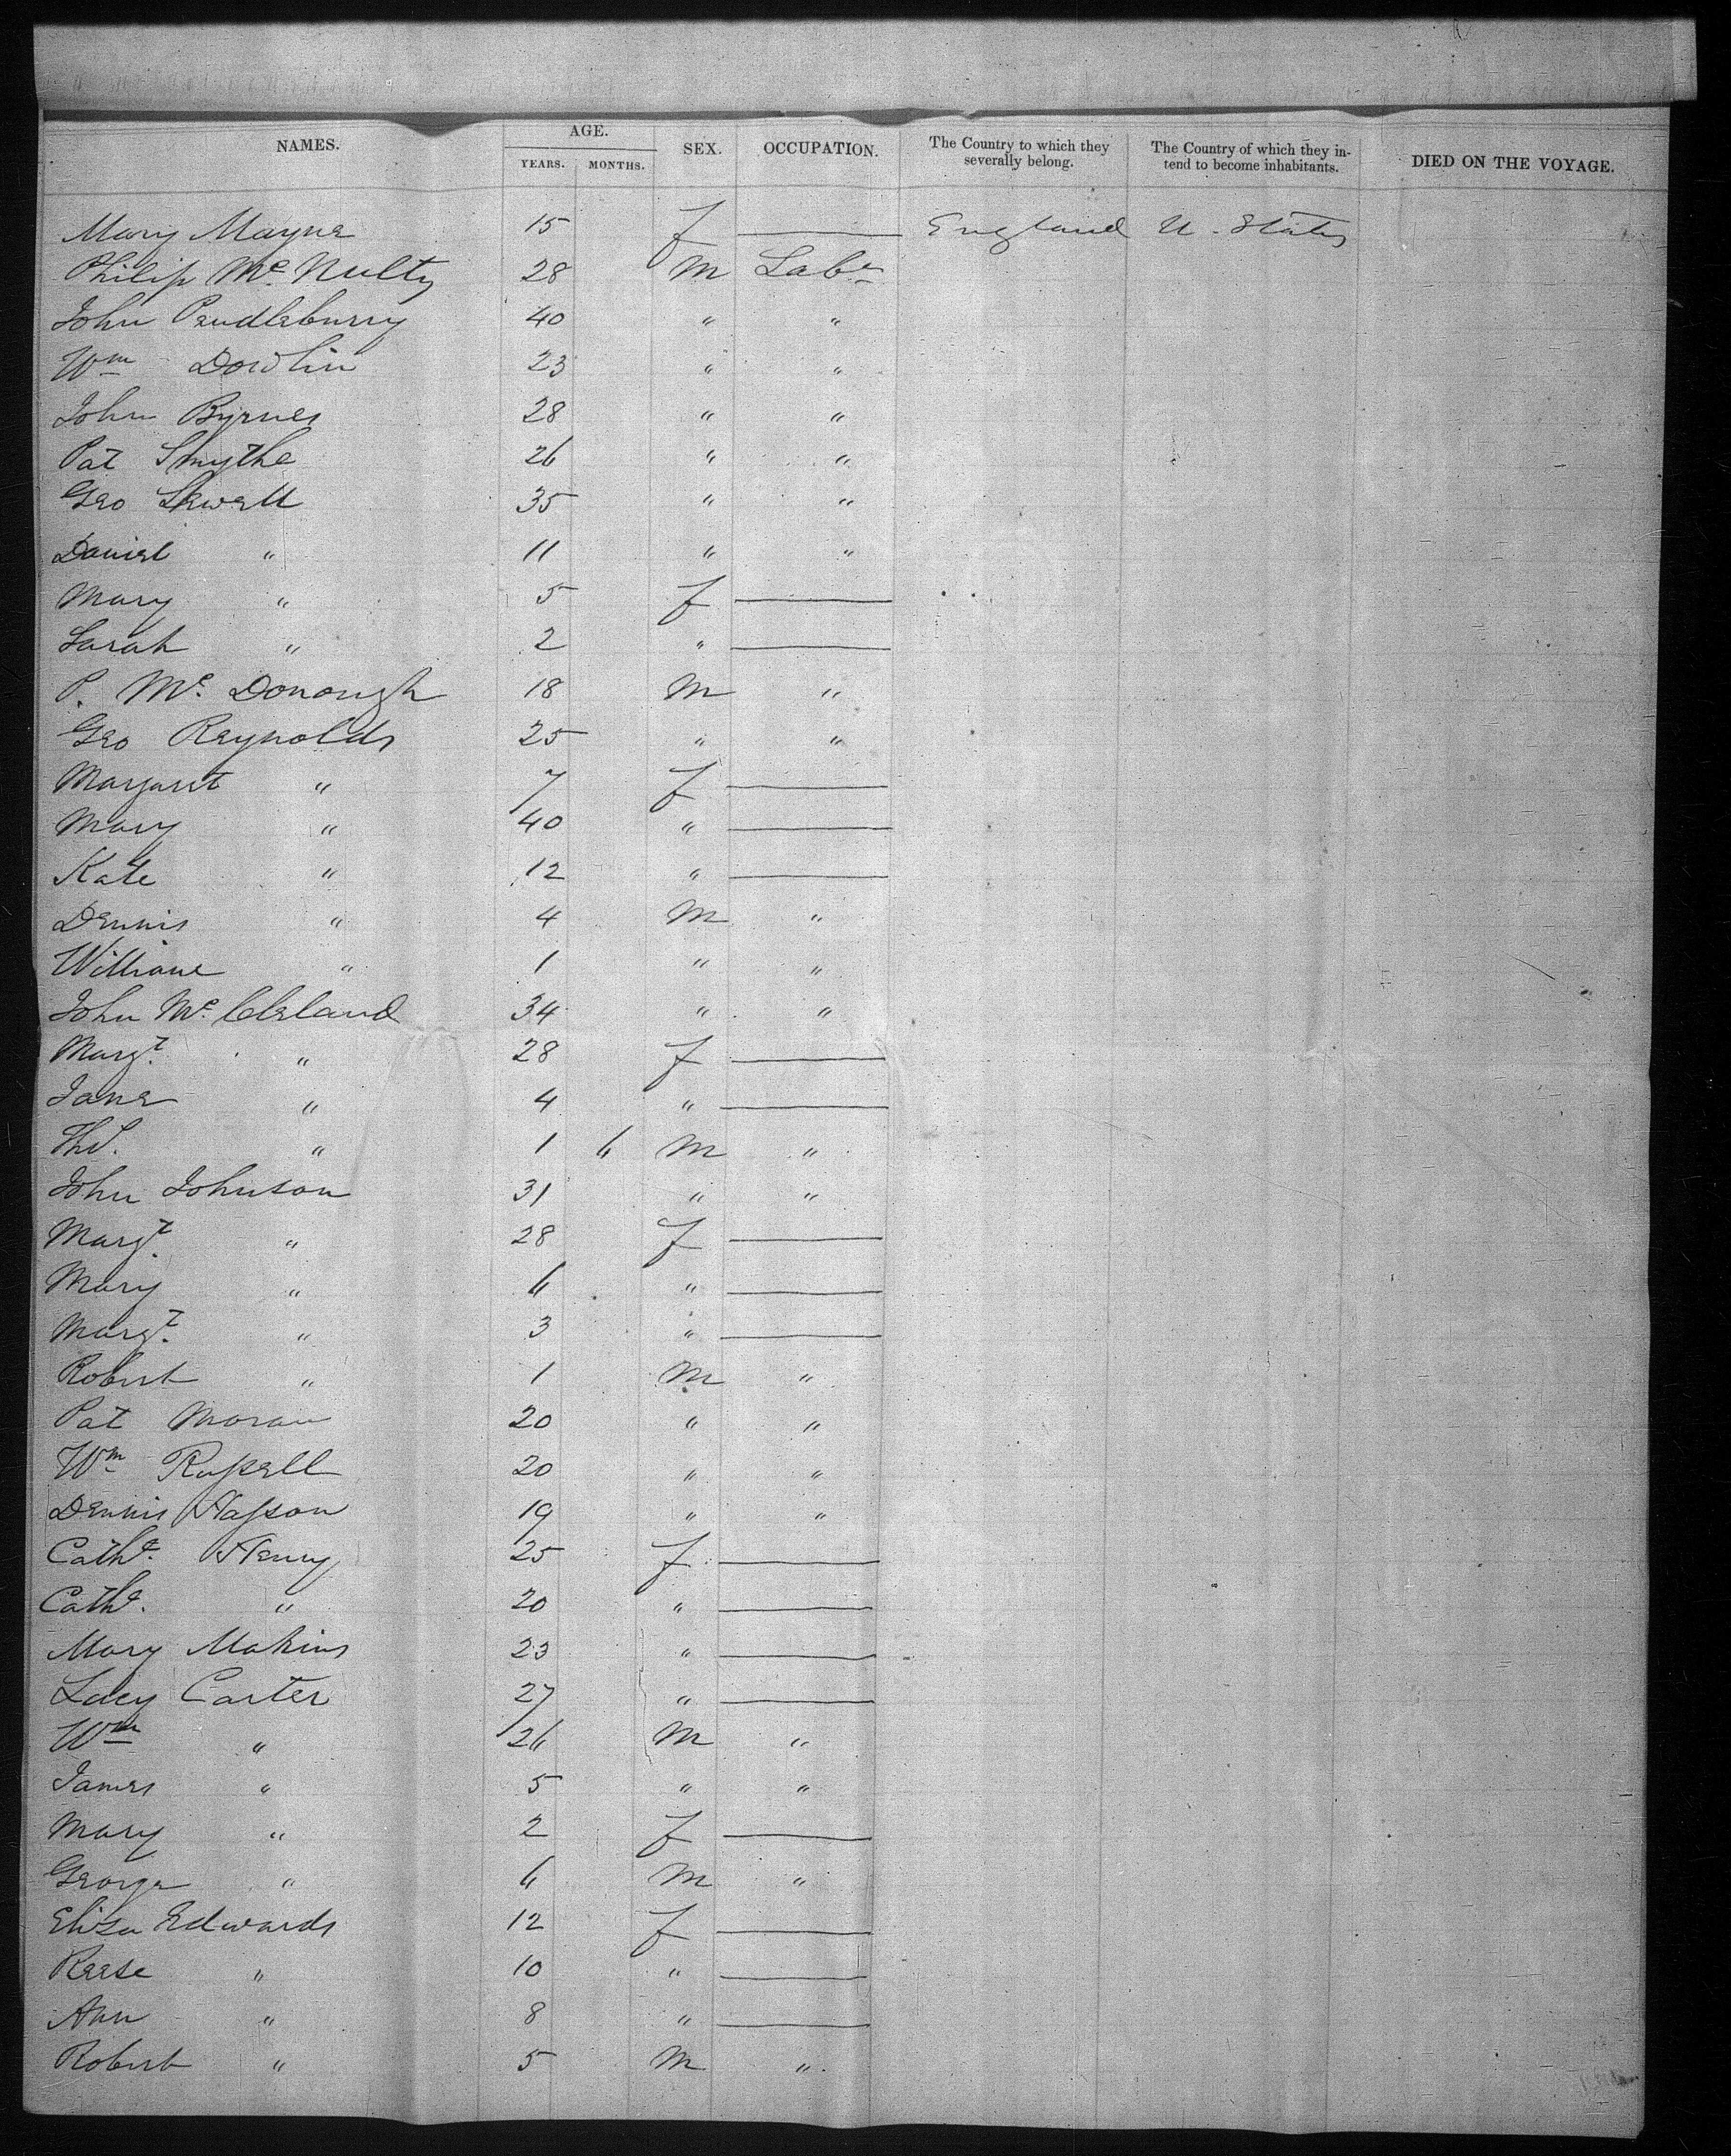 NAMES. AGE. YEARS. MONTHS. SEX. OCCUPATION. The Country to which they severally belong. The Country of which they intend to become inhabitants. DIED ON THE VOYAGE.
Mary Mayne 15 f —— England U. States
Philip Mc. Nulty 28 M Labr
John Pendlebury 40 " "
Wm Dowlin 23 " "
John Byrnes 28 " "
Pat Smythe 26 " "
Geo Sewell 35 " "
Daniel " 11 " "
Mary " 5 f ——
Sarah " 2 " ——
P. Mc. Donough 18 M "
Geo Reynolds 25 " "
Margaret " 7 f ——
Mary " 40 " ——
Kate " 12 " ——
Dennis " 4 M "
William " 1 " "
John Mc. Cleland 34 " "
Margt. " 28 f ——
Jane " 4 " ——
Ths. " 1 6 M "
John Johnson 31 " "
Margt. " 28 f ——
Mary " 6 " ——
Margt. " 3 " ——
Robert " 1 M "
Pat Moran 20 " "
Wm Russell 20 " "
Dennis Hasson 19 " "
Cathe. Henry 25 f ——
Cathe. " 20 " ——
Mary Makins 23 " ——
Lucy Carter 27 " ——
Wm " 26 M "
James " 5 " "
Mary " 2 f ——
George " 6 M "
Eliza Edwards 12 f ——
Reese " 10 " ——
Ann " 8 " ——
Robert " 5 M "